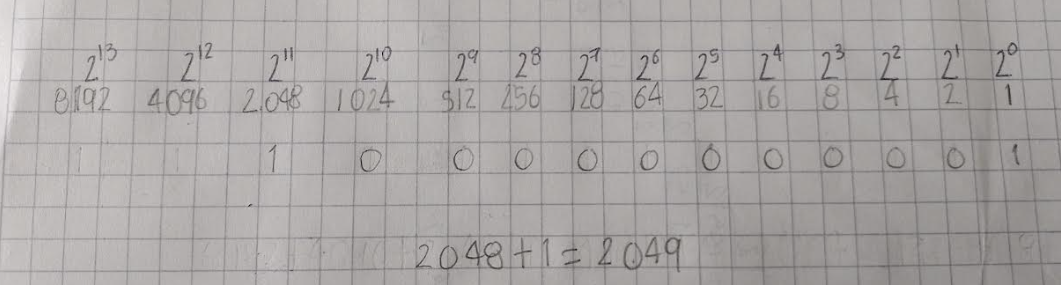 2¹³ 2¹² 2¹¹ 2¹⁰ 2⁹ 2⁸ 2⁷ 2⁶ 2⁵ 2⁴ 2³ 2² 2¹ 2⁰
8192 4096 2.048 1024 512 256 128 64 32 16 8 4 2 1
1 0 0 0 0 0 0 0 0 0 0 1
2048+1=2049